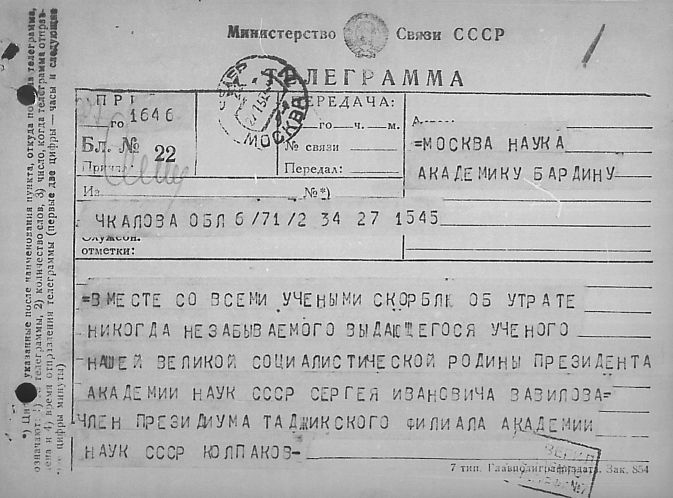 Министерство Связи СССР
ТЕЛЕГРАММА
МОСКВА
ПРИ
го 1646
Бл. № 22
ПЕРЕДАЧА:
го ч. м.
№ связи
Передал:
=МОСКВА НАУКА
АКАДЕМИКУ БАРДИНУ
Из №*)
ЧКАЛОВА ОБЛ 6/71/2 34 27 1545
отметки:
=ВМЕСТЕ СО ВСЕМИ УЧЕНЫМИ СКОРБЛЮ ОБ УТРАТЕ
НИКОГДА НЕЗАБЫВАЕМОГО ВЫДАЮЩЕГОСЯ УЧЕНОГО
НАШЕЙ ВЕЛИКОЙ СОЦИАЛИСТИЧЕСКОЙ РОДИНЫ ПРЕЗИДЕНТА
АКАДЕМИИ НАУК СССР СЕРГЕЯ ИВАНОВИЧА ВАВИЛОВА=
ЧЛЕН ПРЕЗИДИУМА ТАДЖИКСКОГО ФИЛИАЛА АКАДЕМИИ
НАУК СССР КОЛПАКОВ-
7 тип. Главполиграфиздата. Зак. 854
указанные после наименования пункта, откуда подана телеграмма,
означают: телеграммы, 2) количество слов, 3) число, когда телеграмма отправ-
лена и 4) время отправления телеграммы (первые две цифры — часы и следующие
две цифры минуты)